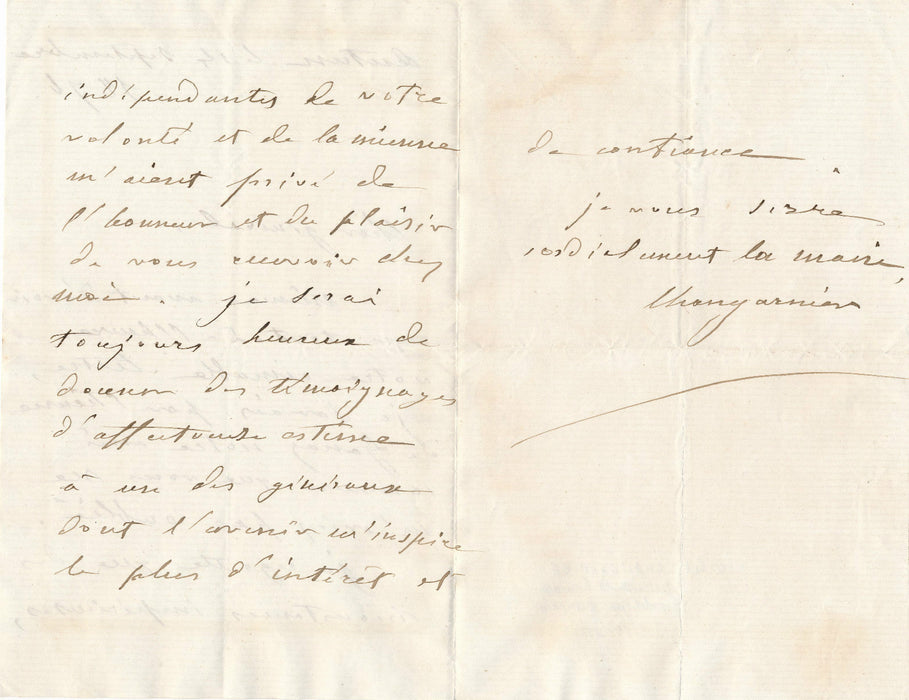 indépendantes de votre
volonté et de la mienne
m'aient privé de
l'honneur et du plaisir
de vous recevoir chez
moi. je serai
toujours heureux de
donner des témoignages
d'affectueuse estime
à un des généraux
dont l'avenir m'inspire
le plus d'intérêt et
de confiance
je vous serre
cordialement la main,
Changarnier